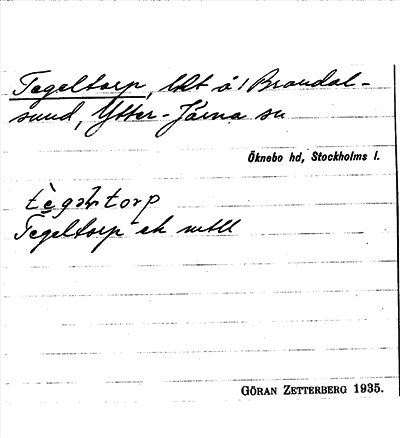 Tegeltorp, lht å Brandal-
sund, Ytter-Järna sn
Öknebo hd, Stockholms l.
Tegeltorp ek
GÖRAN ZETTERBERG 1935.